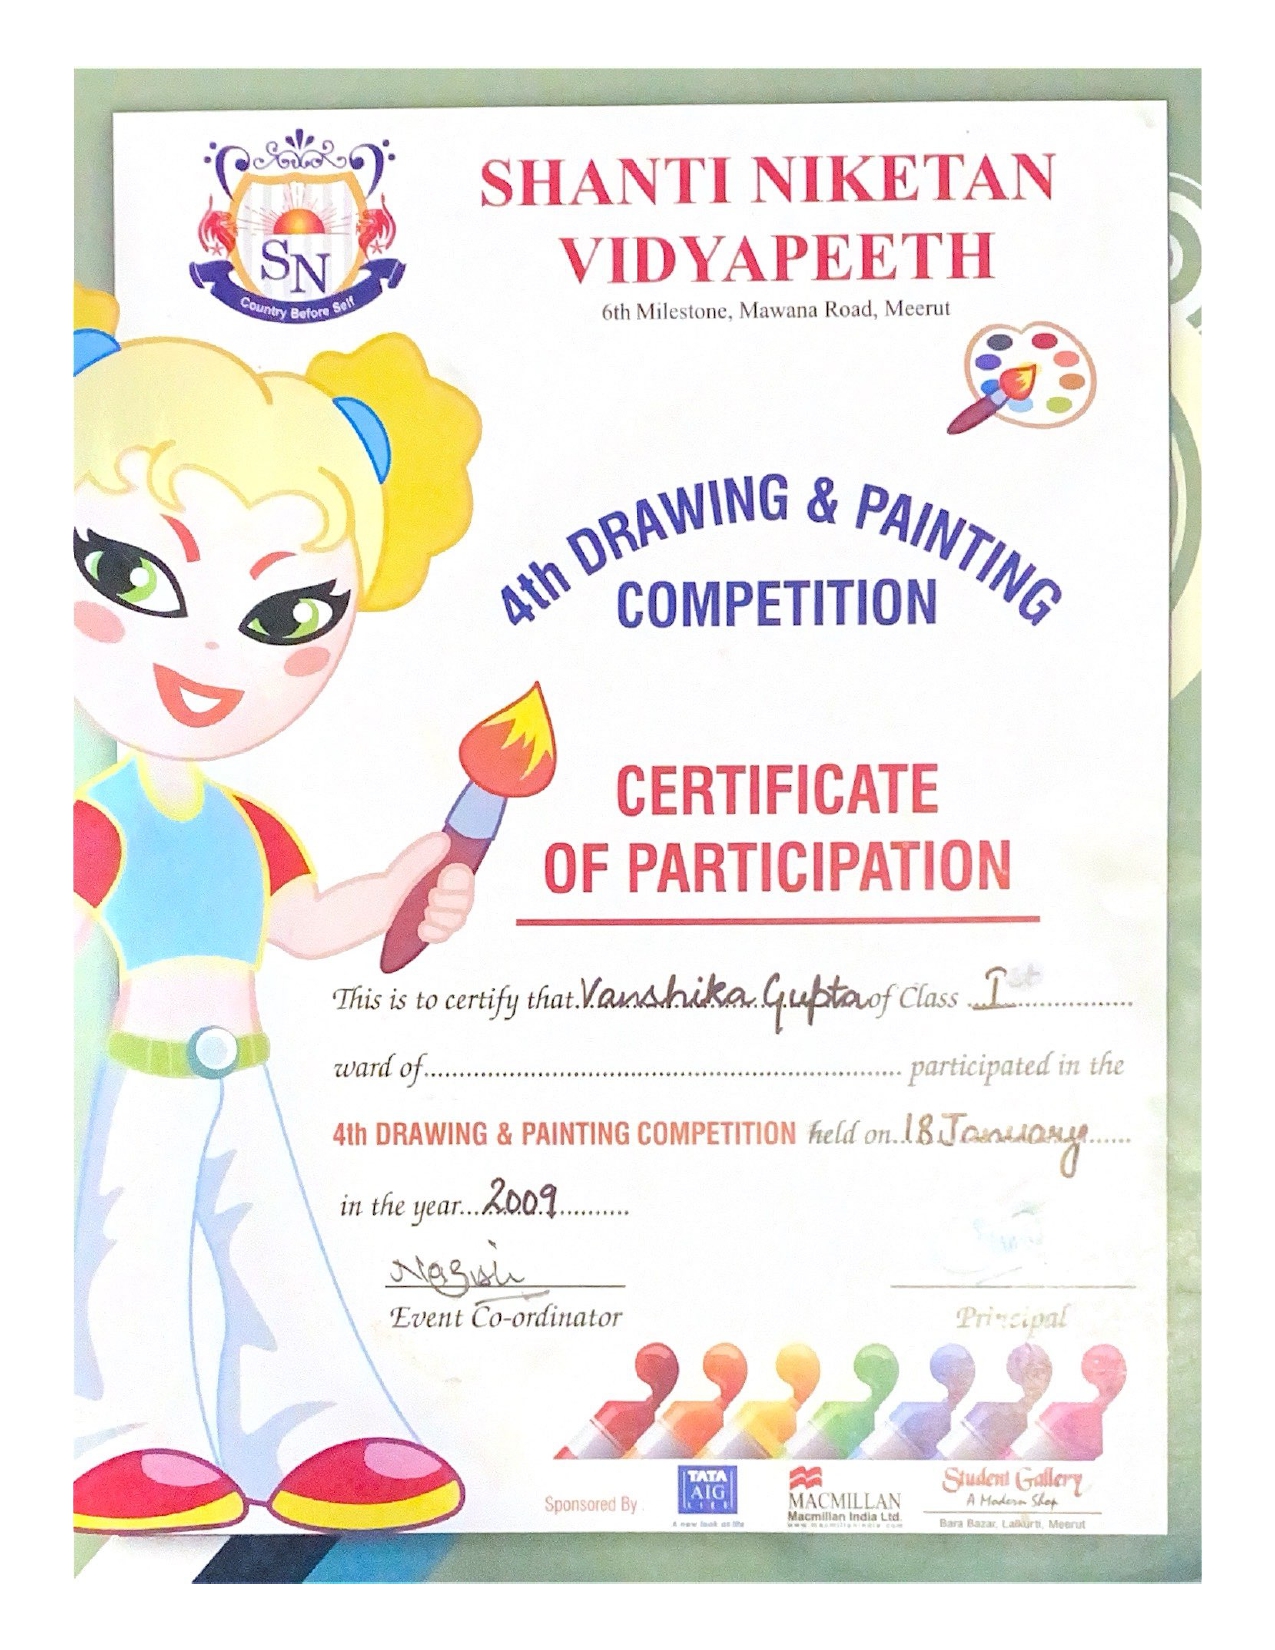 SHANTI NIKETAN
VIDYAPEETH
6th Milestone, Mawana Road, Meerut
SN
Country Before Self
4th DRAWING & PAINTING
COMPETITION
CERTIFICATE
OF PARTICIPATION
This is to certify that Vanshika Gupta of Class Ist
ward of.......... participated in the
4th DRAWING & PAINTING COMPETITION held on 18 January
in the year 2009
Event Co-ordinator
Principal
Sponsored By
TATA
AIG
LIFE
A new look at life
MACMILLAN
Macmillan India Ltd.
www.macmillan-india.com
Student Gallery
A Modern Shop
Bara Bazar, Lalkurti, Meerut